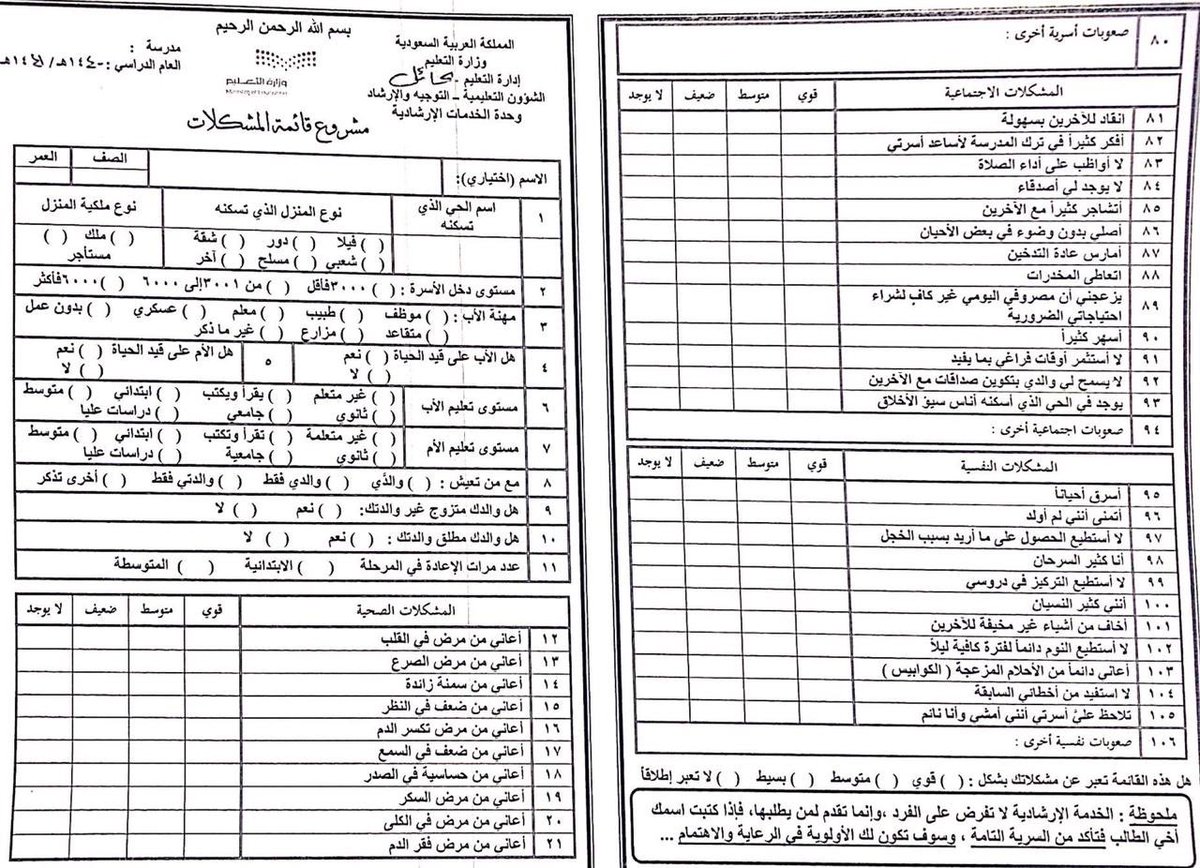 بسم الله الرحمن الرحيم
المملكة العربية السعودية
وزارة التعليم
إدارة التعليم بحائل
الشؤون التعليمية – التوجيه والإرشاد
وحدة الخدمات الإرشادية
وزارة التعليم
Ministry of Education
مدرسة :
العام الدراسي : ١٤٤٠هـ/١٤٤١هـ
مشروع قائمة المشكلات
الاسم (اختياري): الصف العمر
١ اسم الحي الذي تسكنه نوع المنزل الذي تسكنه نوع ملكية المنزل
( ) فيلا ( ) دور ( ) شقة ( ) ملك ( )
( ) شعبي ( ) مسلح ( ) آخر مستأجر
٢ مستوى دخل الأسرة : ( ) ٣٠٠٠فأقل ( ) من ٣٠٠١إلى ٦٠٠٠ ( ) ٦٠٠٠فأكثر
٣ مهنة الأب : ( ) موظف ( ) طبيب ( ) معلم ( ) عسكري ( ) بدون عمل
( ) متقاعد ( ) مزارع ( ) غير ما ذكر
٤ هل الأب على قيد الحياة ( ) نعم ٥ هل الأم على قيد الحياة ( ) نعم
( ) لا ( ) لا
٦ مستوى تعليم الأب ( ) غير متعلم ( ) يقرأ ويكتب ( ) ابتدائي ( ) متوسط
( ) ثانوي ( ) جامعي ( ) دراسات عليا
٧ مستوى تعليم الأم ( ) غير متعلمة ( ) تقرأ وتكتب ( ) ابتدائي ( ) متوسط
( ) ثانوي ( ) جامعية ( ) دراسات عليا
٨ مع من تعيش : ( ) والدَّي ( ) والدي فقط ( ) والدتي فقط ( ) أخرى تذكر
٩ هل والدك متزوج غير والدتك: ( ) نعم ( ) لا
١٠ هل والدك مطلق والدتك : ( ) نعم ( ) لا
١١ عدد مرات الإعادة في المرحلة ( ) الابتدائية ( ) المتوسطة
المشكلات الصحية قوي متوسط ضعيف لا يوجد
١٢ أعاني من مرض في القلب
١٣ أعاني من مرض الصرع
١٤ أعاني من سمنة زائدة
١٥ أعاني من ضعف في النظر
١٦ أعاني من مرض تكسر الدم
١٧ أعاني من ضعف في السمع
١٨ أعاني من حساسية في الصدر
١٩ أعاني من مرض السكر
٢٠ أعاني من مرض في الكلى
٢١ أعاني من مرض فقر الدم
٨٠ صعوبات أسرية أخرى :
المشكلات الاجتماعية قوي متوسط ضعيف لا يوجد
٨١ انقاد للآخرين بسهولة
٨٢ أفكر كثيراً في ترك المدرسة لأساعد أسرتي
٨٣ لا أواظب على أداء الصلاة
٨٤ لا يوجد لي أصدقاء
٨٥ أتشاجر كثيراً مع الآخرين
٨٦ أصلي بدون وضوء في بعض الأحيان
٨٧ أمارس عادة التدخين
٨٨ اتعاطى المخدرات
٨٩ يزعجني أن مصروفي اليومي غير كافٍ لشراء
احتياجاتي الضرورية
٩٠ أسهر كثيراً
٩١ لا أستثمر أوقات فراغي بما يفيد
٩٢ لا يسمح لي والدي بتكوين صداقات مع الآخرين
٩٣ يوجد في الحي الذي أسكنه أناس سيئ الأخلاق
٩٤ صعوبات اجتماعية أخرى :
المشكلات النفسية قوي متوسط ضعيف لا يوجد
٩٥ أسرق أحياناً
٩٦ أتمنى أنني لم أولد
٩٧ لا أستطيع الحصول على ما أريد بسبب الخجل
٩٨ أنا كثير السرحان
٩٩ لا أستطيع التركيز في دروسي
١٠٠ أنني كثير النسيان
١٠١ أخاف من أشياء غير مخيفة للآخرين
١٠٢ لا أستطيع النوم دائماً لفترة كافية ليلاً
١٠٣ أعاني دائماً من الأحلام المزعجة ( الكوابيس )
١٠٤ لا استفيد من أخطائي السابقة
١٠٥ تلاحظ عليَّ أسرتي أنني أمشي وأنا نائم
١٠٦ صعوبات نفسية أخرى :
هل هذه القائمة تعبر عن مشكلاتك بشكل : ( ) قوي ( ) متوسط ( ) بسيط ( ) لا تعبر إطلاقاً
ملحوظة : الخدمة الإرشادية لا تفرض على الفرد ،وإنما تقدم لمن يطلبها، فإذا كتبت اسمك
أخي الطالب فتأكد من السرية التامة ، وسوف تكون لك الأولوية في الرعاية والاهتمام ...